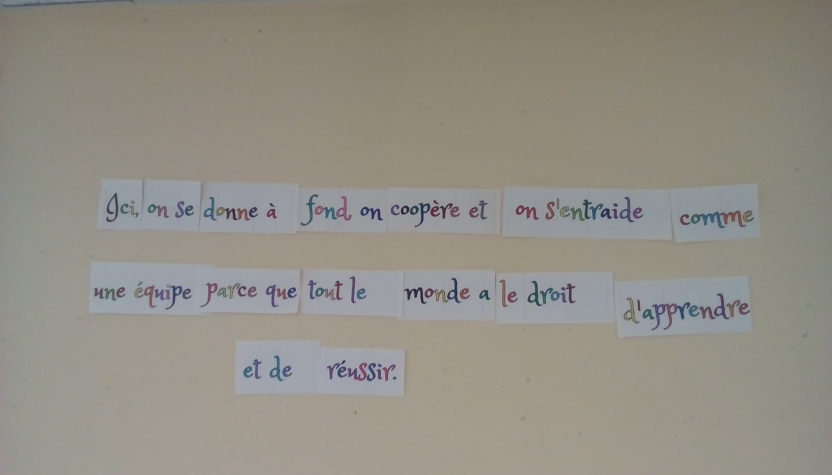 Ici, on se donne à fond, on coopère et on s'entraide comme
une équipe parce que tout le monde a le droit d'apprendre
et de réussir.